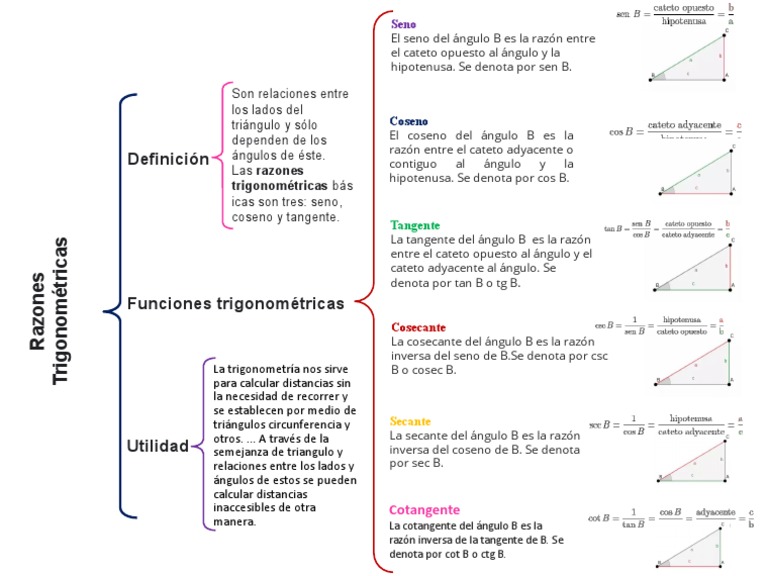 Razones
Trigonométricas
Definición
Son relaciones entre
los lados del
triángulo y sólo
dependen de los
ángulos de éste.
Las razones
trigonométricas bás
icas son tres: seno,
coseno y tangente.
Funciones trigonométricas
Seno
El seno del ángulo B es la razón entre
el cateto opuesto al ángulo y la
hipotenusa. Se denota por sen B.
sen B = cateto opuesto / hipotenusa = b / a
Coseno
El coseno del ángulo B es la
razón entre el cateto adyacente o
contiguo al ángulo y la
hipotenusa. Se denota por cos B.
cos B = cateto adyacente / = c /
Tangente
La tangente del ángulo B es la razón
entre el cateto opuesto al ángulo y el
cateto adyacente al ángulo. Se
denota por tan B o tg B.
tan B = sen B / cos B = cateto opuesto / cateto adyacente = b / c
Cosecante
La cosecante del ángulo B es la razón
inversa del seno de B.Se denota por csc
B o cosec B.
csc B = 1 / sen B = hipotenusa / cateto opuesto = a / b
Secante
La secante del ángulo B es la razón
inversa del coseno de B. Se denota
por sec B.
sec B = 1 / cos B = hipotenusa / cateto adyacente = a / c
Cotangente
La cotangente del ángulo B es la
razón inversa de la tangente de B. Se
denota por cot B o ctg B.
cot B = 1 / tan B = cos B / = adyacente / = c / b
Utilidad
La trigonometría nos sirve
para calcular distancias sin
la necesidad de recorrer y
se establecen por medio de
triángulos circunferencia y
otros. ... A través de la
semejanza de triangulo y
relaciones entre los lados y
ángulos de estos se pueden
calcular distancias
inaccesibles de otra
manera.